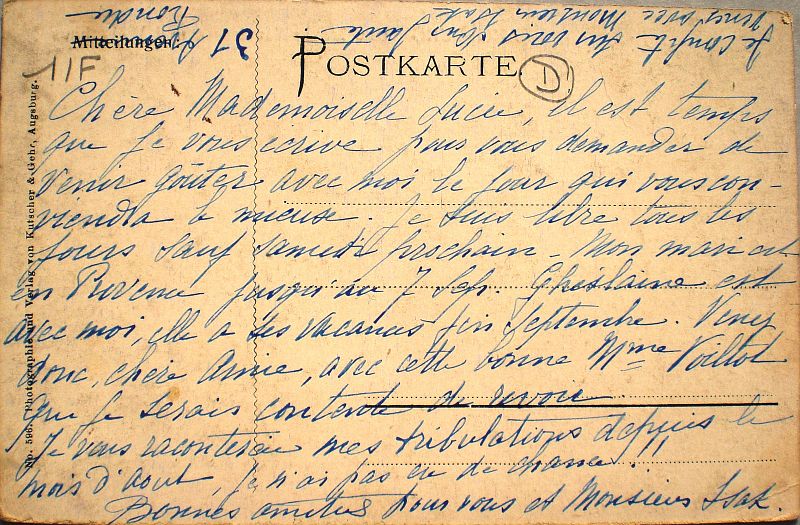 Je compte sur vous
venir avec Monsieur Isak
Mitteilungen.
31
11F
POSTKARTE.
D
Chère Mademoiselle Lucie, Il est temps
que je vous écrive pour vous demander de
venir goûter avec moi le jour qui vous con-
viendra le mieux. Je suis libre tous les
jours sauf samedi prochain - Mon mari est
en Provence jusqu'au 7 Sep. Ghislaine est
avec moi, elle a ses vacances fin Septembre. Venez
donc, chère Amie, avec cette bonne Mme Voillot
que je serais contente de revoir.
Je vous raconterai mes tribulations depuis le
mois d'août, je n'ai pas eu de chance!!
Bonnes amitiés pour vous et Monsieur Isak.
No. 596. Photographie und Verlag von Kutscher & Gehr, Augsburg.